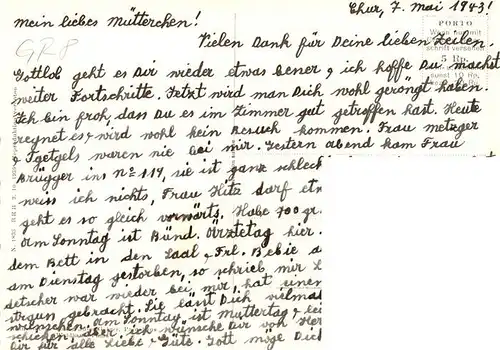 Chur, 7. Mai 1943!
Mein liebes Mütterchen!
PORTO
Vielen Dank für Deine lieben Zeilen!
Gottlob geht es Dir wieder etwas besser & ich hoffe Du machst
weiter Fortschritte. Jetzt wird man Dich wohl geröngt haben.
Ich bin froh, dass Du es im Zimmer gut getroffen hast. Heute
regnet es & wird wohl kein Besuch kommen. Frau Metzger
& waren nie bei mir. Gestern abend kam Frau
Brügger ins No 117, sie ist ganz schlech
weiss ich nichts, Frau Hitz darf et
geht es so gleich vorwärts. Habe 700 gr.
Am Sonntag ist Bünd. Ärztetag hier.
dem Bett in den Saal & Frl. Bebie a
am Dienstag gestorben, so schrieb mir
war wieder bei mir, hat einen
gebracht. Sie lässt Dich vielma
wünschen. Am Sonntag ist Muttertag &
schicken aber ich wünsche Dir von Her
Dir für alle Liebe & Güte. Gott möge Dich